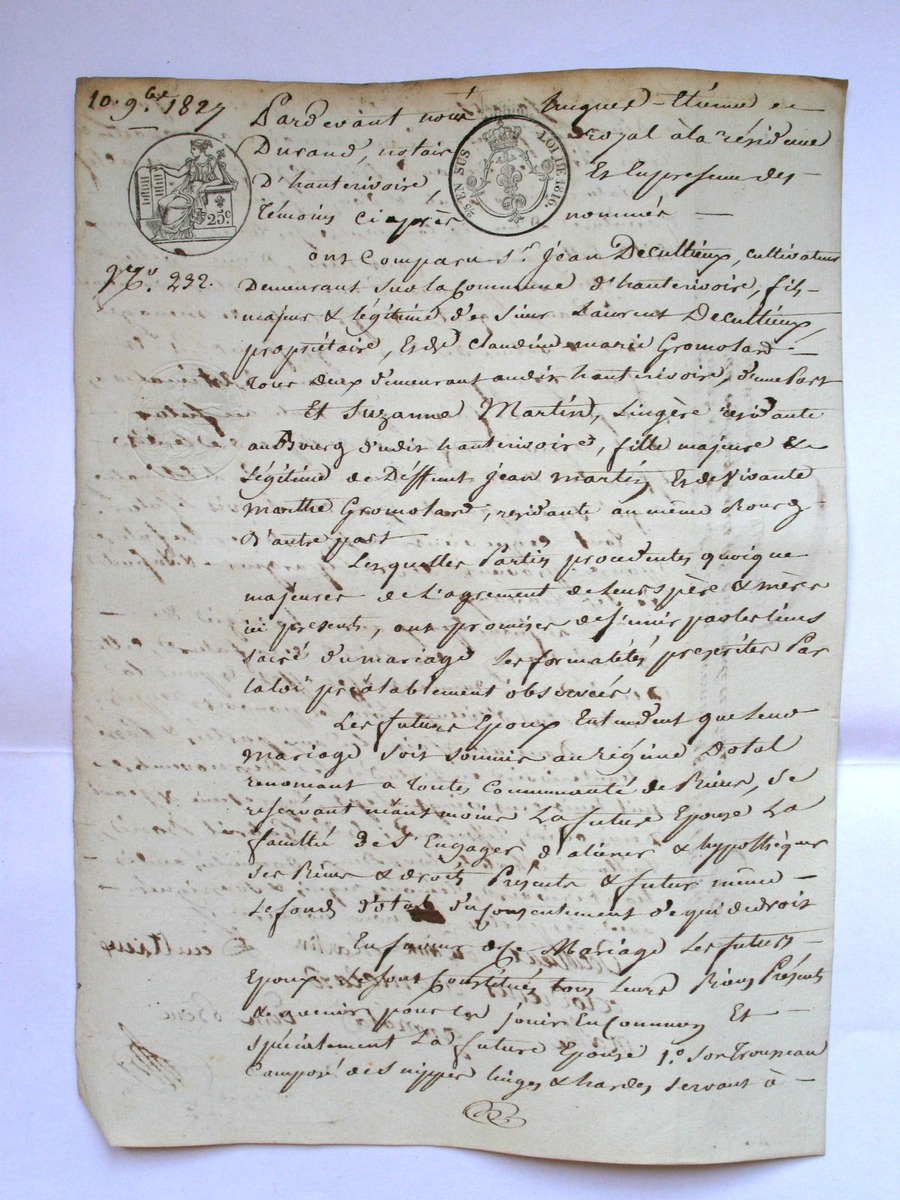 10. 9.bre 1827
Pardevant nous Hugues-Etienne
Durand, notaire royal à la résidence
D'hauterivoire, Et En presence des
témoins ci après nommés
2/5 EN SUS LOI DE 1816.
25c
No. 232.
ont Comparu Sr. Jean Decultieux, cultivateur
Demeurant sur la Commune d'hauterivoire, fils
majeur & légitime de Sieur Laurent Decultieux,
propriétaire, Et de Claudine marie Gromolard
tous deux demeurant audit hauterivoire, d'une Part
Et Suzanne Martin, Lingère residante
au Bourg dudit hauterivoire, fille majeure &
Légitime de Déffunt Jean Martin Et de Vivante
Marthe Gromolard, residante au même Bourg
d'autre part
Lesquelles Parties procedentes quoique
majeures de l'agrement de leurs père & mères
ici presents, ont promises de s'unir par les liens
sacré du mariage les formalités prescrites Par
la loi préalablement observées
Les futurs Epoux Entendent que leur
Mariage soit soumis au régime Dotal
renoncant a toutes Communauté de Biens, se
reservant néantmoins La future Epouse La
faculté de s'Engager d'aliener & hypothèquer
ses Biens & droits Présents & futur même
Le fond Dotal du consentement de qui de droit
En faveur de ce Mariage Les futurs
Epoux se sont Constitués tous leurs Biens Présents
& avenir pour les jouir En Commun Et
spécialement La future Epouse 1.o Son Trousseau
Composé de nippes linges & hardes servant à